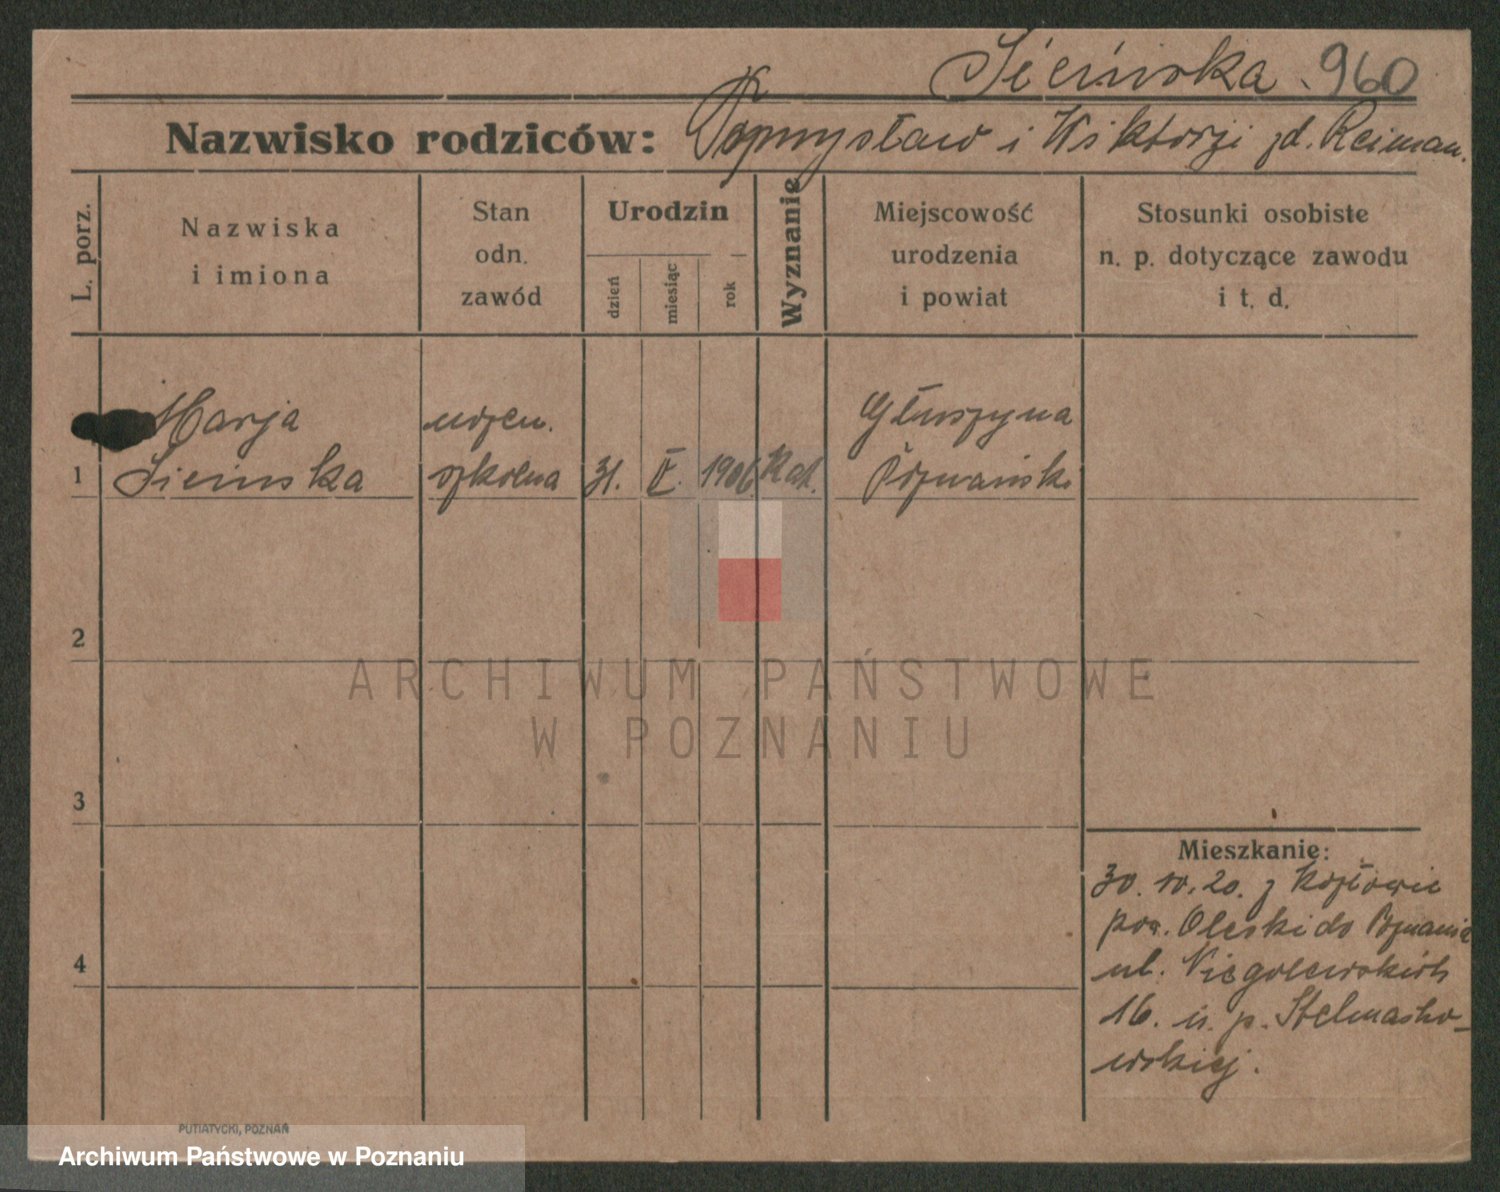 Siecińska 960
Nazwisko rodziców: i Wiktorji zd. Reiman.
L. porz.
Nazwiska
i imiona
Stan
odn.
zawód
Urodzin
dzień
miesiąc
rok
Wyznanie
Miejscowość
urodzenia
i powiat
Stosunki osobiste
n. p. dotyczące zawodu
i t. d.
Marja uczen. Głuszyna
1 szkolna 31. 1906 Kat. Poznański
2
ARCHIWUM PAŃSTWOWE
W POZNANIU
3
4
Mieszkanie:
30.10.20. z Kozłowic
pow. Oleski do Poznania
ul. Niegolewskich
16. u. p. Stelmasko-
wskiej.
PUTIATYCKI, POZNAŃ
Archiwum Państwowe w Poznaniu